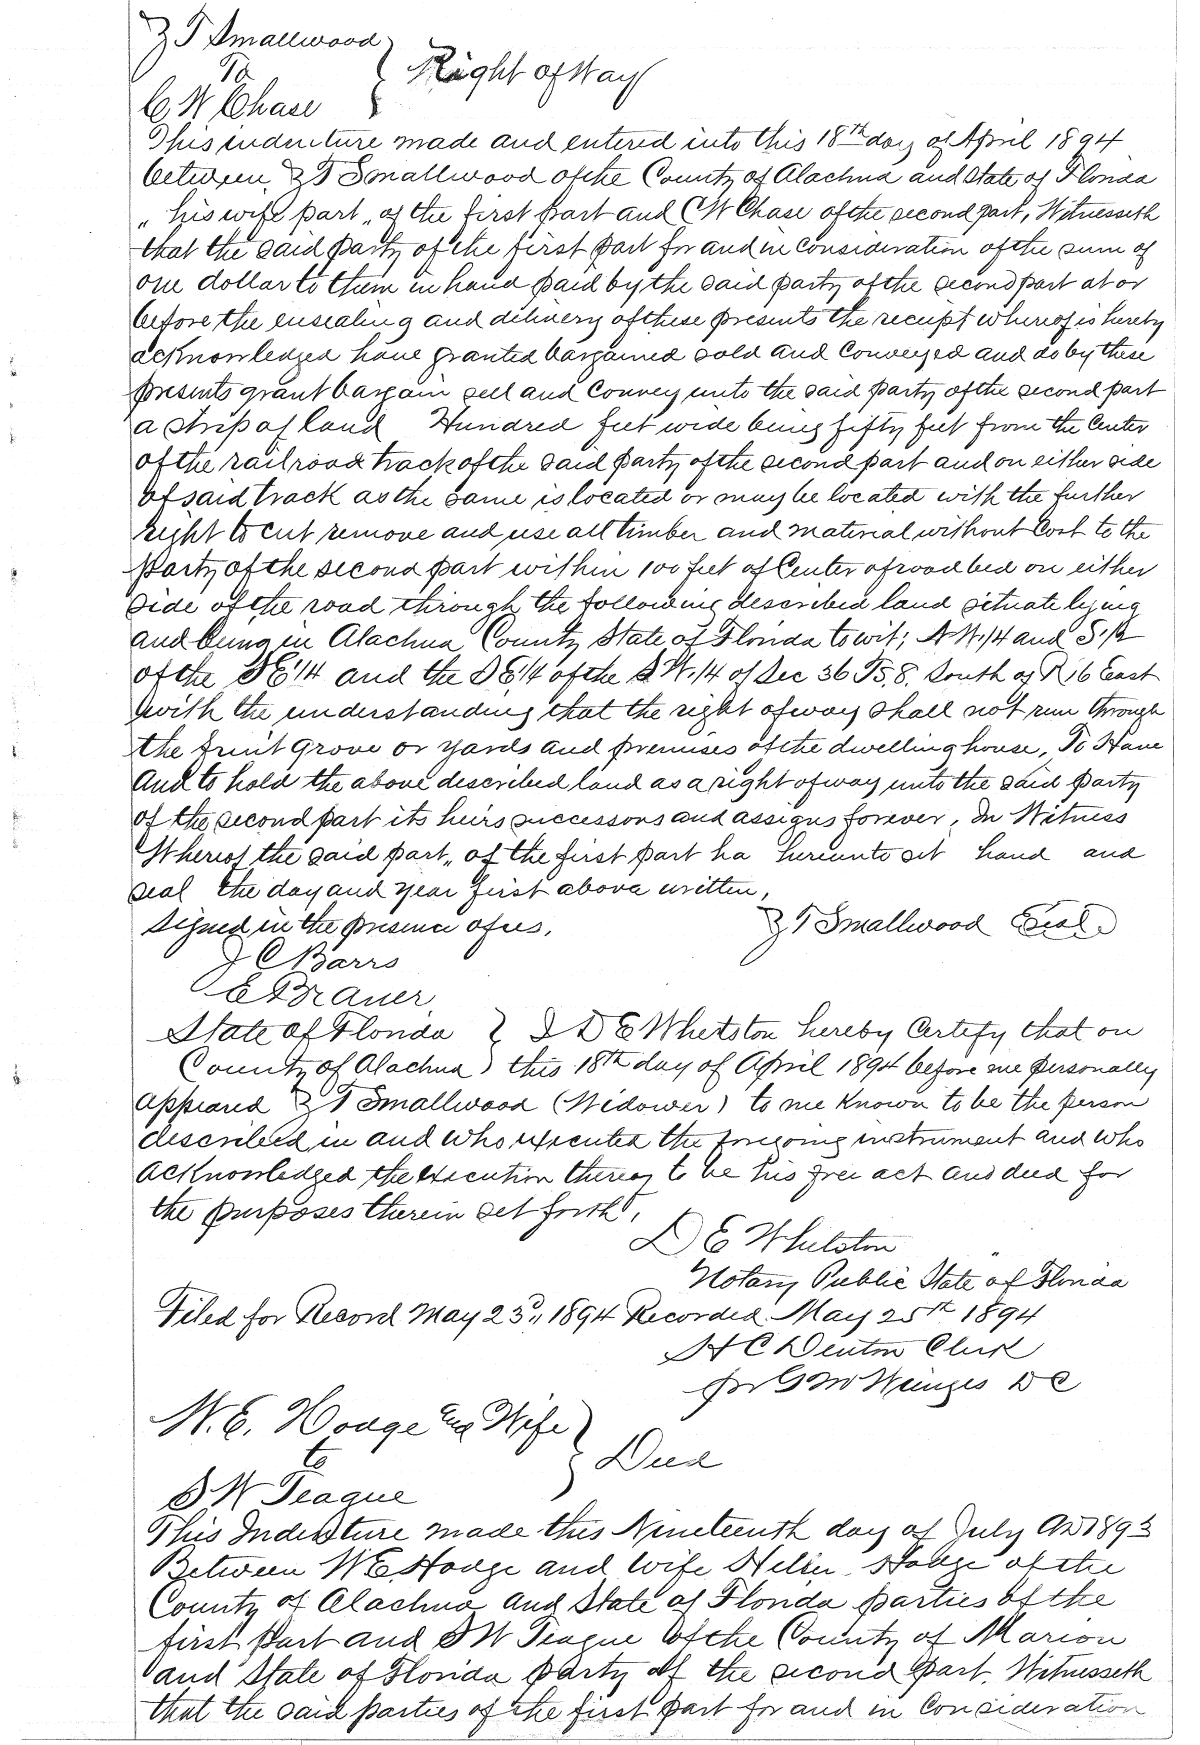 Z T Smallwood
To } Right of Way
C W Chase
This indenture made and entered into this 18th day of April 1894
between Z T Smallwood of the County of Alachua and State of Florida
„ his wife part „ of the first part and C W Chase of the second part, Witnesseth
that the said party of the first part for and in consideration of the sum of
one dollar to them in hand paid by the said party of the second part at or
before the ensealing and delivery of these presents the receipt whereof is hereby
acknowledged have granted bargained sold and conveyed and do by these
presents grant bargain sell and convey unto the said party of the second part
a strip of land Hundred feet wide being fifty feet from the center
of the railroad track of the said party of the second part and on either side
of said track as the same is located or may be located with the further
right to cut remove and use all timber and material without cost to the
party of the second part within 100 feet of center of road bed on either
side of the road through the following described land situate lying
and being in Alachua County State of Florida to wit; N W 1/4 and S 1/2
of the S E 1/4 and the S E 1/4 of the S W 1/4 of Sec 36 TS. 8. South of R 16 East
with the understanding that the right of way shall not run through
the fruit grove or yards and premises of the dwelling house, To Have
and to hold the above described land as a right of way unto the said party
of the second part its heirs successors and assigns forever, In Witness
Whereof the said part „ of the first part ha hereunto set hand and
seal the day and year first above written,
Signed in the presence of us, Z T Smallwood Seal
J C Barrs
State of Florida } I D E Whetston hereby certify that on
County of Alachua } this 18th day of April 1894 before me personally
appeared Z T Smallwood (Widower) to me known to be the person
described in and who executed the foregoing instrument and who
acknowledged the execution thereof to be his free act and deed for
the purposes therein set forth,
D E Whetston
Notary Public State of Florida
Filed for Record May 23d, 1894 Recorded May 25th 1894
H C Denton Clerk
pr D C
W. E. Hodge and Wife
to } Deed
S W Teague
This Indenture made this Nineteenth day of July AD 1893
Between W E Hodge and wife Hodge of the
County of Alachua and State of Florida parties of the
first part and S W Teague of the County of Marion
and State of Florida party of the second part, Witnesseth
that the said parties of the first part for and in consideration